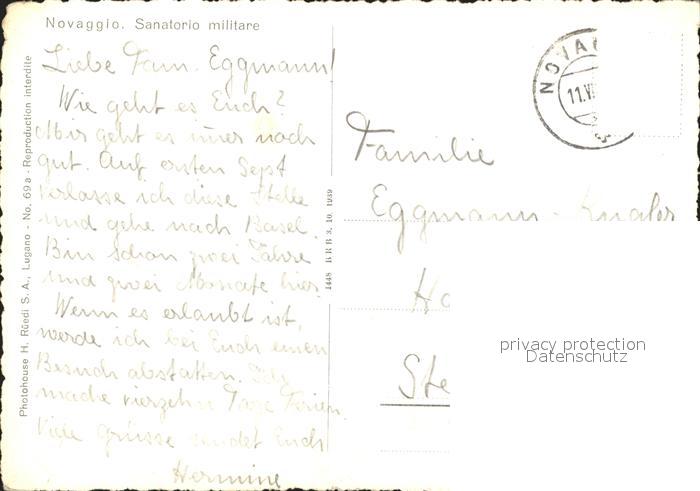 Novaggio. Sanatorio militare
Liebe Fam. Eggmann!
Wie geht es Euch?
Mir geht es imer noch
gut. Auf ersten Sept
verlasse ich diese Stelle
und gehe nach Basel.
Bin schon zwei Jahre
und zwei Monate hier.
Wenn es erlaubt ist,
werde ich bei Euch einen
Besuch abstatten. Ich
mache vierzehn Tage Ferien.
Viele Grüsse sendet Euch
Hermine
Photohouse H. Rüedi S. A., Lugano - No. 69 a - Reproduction interdite
1448 B R B 3. 10. 1939
NOVAG
11.VI
Familie
Eggmann-
Ho
Ste
privacy protection
Datenschutz